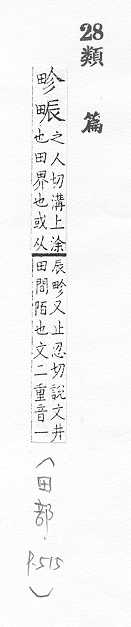 28
類篇
畛畛之人切溝上涂
畷也田界也或从
辰畛又止忍切說文井
田間陌也文二重音一
(田部.P.515)